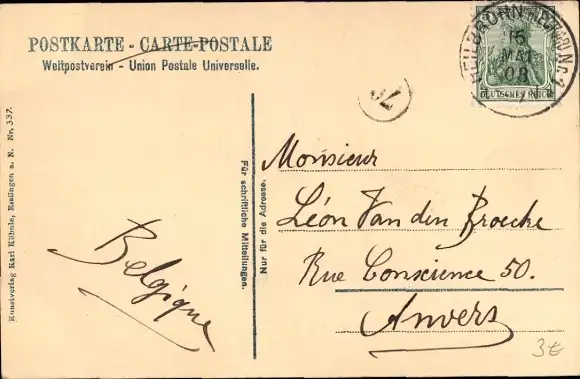 POSTKARTE - CARTE-POSTALE
Weltpostverein - Union Postale Universelle.
HEILBRONN
15
MAI
08
DEUTSCHES REICH
70
Monsieur
Léon Van den Broecke
Rue Conscience 50.
Anvers
Belgique
Für schriftliche Mitteilungen.
Nur für die Adresse.
Kunstverlag Karl Kühnle, Esslingen a. N. Nr. 337.
3€